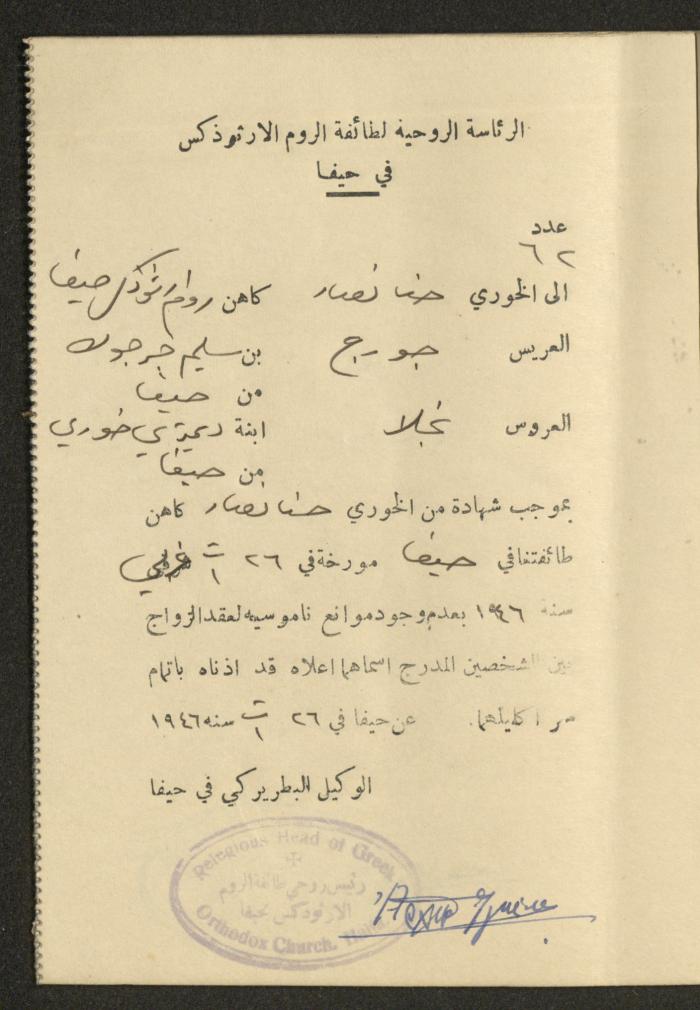 الرئاسة الروحية لطائفة الروم الارثوذكس
في حيفا
عدد
٦٢
الى الخوري حنا نصار كاهن روم ارثوذكس حيفا
العريس جورج بن سليم جرجورة
من حيفا
العروس نجلا ابنة ديمتري خوري
من حيفا
بموجب شهادة من الخوري حنا نصار كاهن
طائفتنا في حيفا مورخة في ٢٦ ت ١ غربي
سنة ١٩٤٦ بعدم وجود موانع ناموسيه لعقد الزواج
بين الشخصين المدرج اسماهما اعلاه قد اذناه باتمام
سر اكليلهما. عن حيفا في ٢٦ ت ١ سنه ١٩٤٦
الوكيل البطريركي في حيفا
Relegious Head of Greek
رئيس روحي طائفة الروم
الارثوذكس بحيفا
Orthodox Church. Haifa